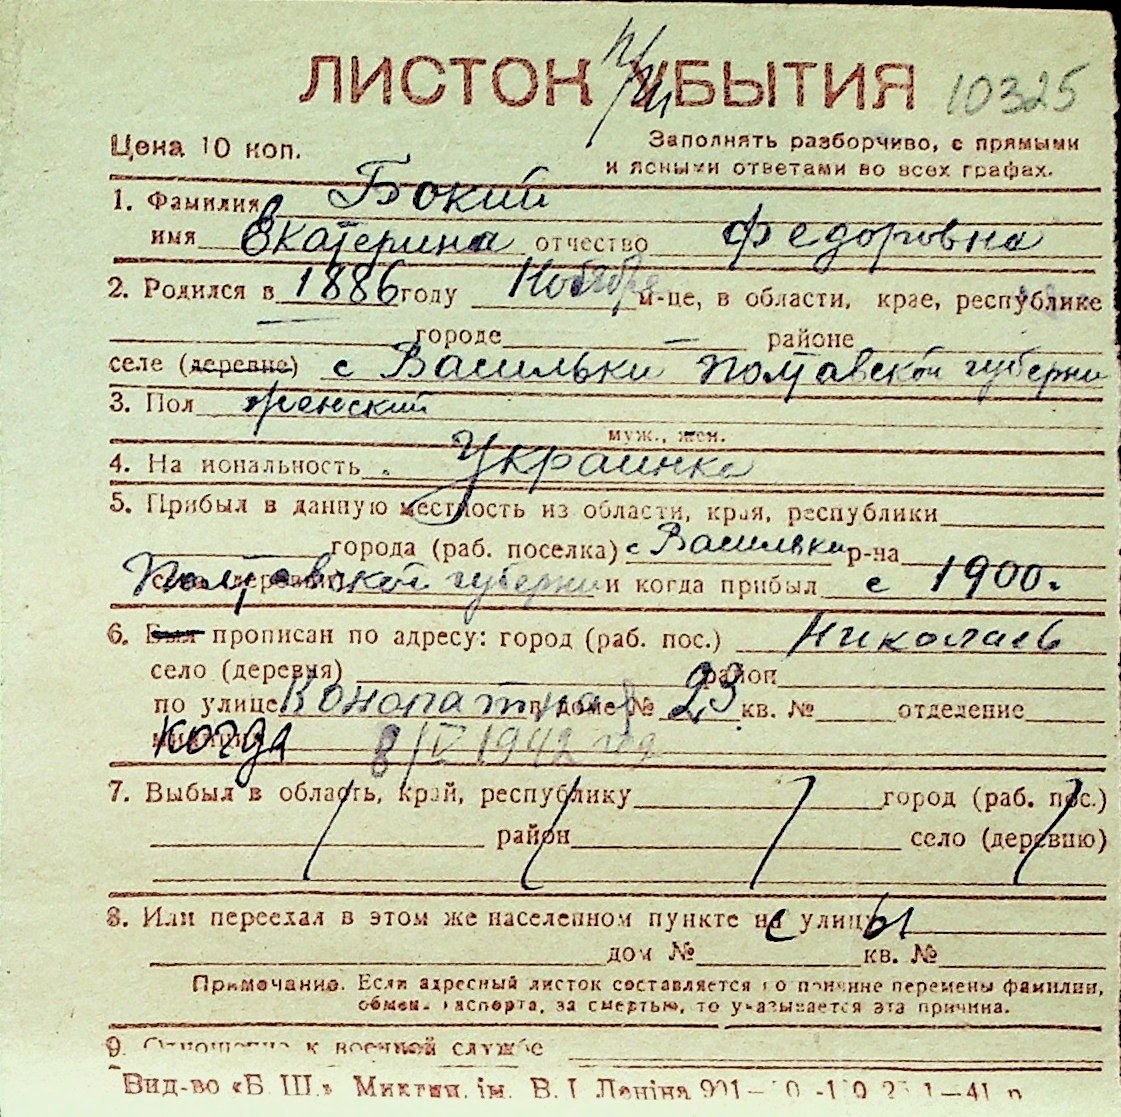 ЛИСТОК УБЫТИЯ 10325
Цена 10 коп.
Заполнять разборчиво, с прямыми
и ясными ответами во всех графах.
1. Фамилия Бокий
имя Екатерина отчество Федоровна
2. Родился в 1886 году Ноября м-це, в области, крае, республике
городе районе
селе (деревне) с Васильки Полтавской губерни
3. Пол женский
муж., жен.
4. На иональность Украинка
5. Прибыл в данную местность из области, края, республики
города (раб. поселка) с Васильки р-на
Полтавской губернии и когда прибыл с 1900.
6. Был прописан по адресу: город (раб. пос.) Николаев
село (деревня) район
по улице Конопатная в доме № 23 кв. № отделение
когда 8/IV 1942 год
7. Выбыл в область, край, республику город (раб. пос.)
район село (деревню)
8. Или переехал в этом же населенном пункте с улицы
дом № кв. №
Примечание. Если адресный листок составляется по причине перемены фамилии,
обмен. паспорта, за смертью, то указывается эта причина.
9. Отношение к военной службе
Вид-во «Б. Ш.» Микгин. ім. В. І. Леніна